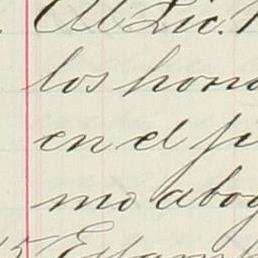 Al Lic.
los hono
en el ju
mo abog
15 Estam